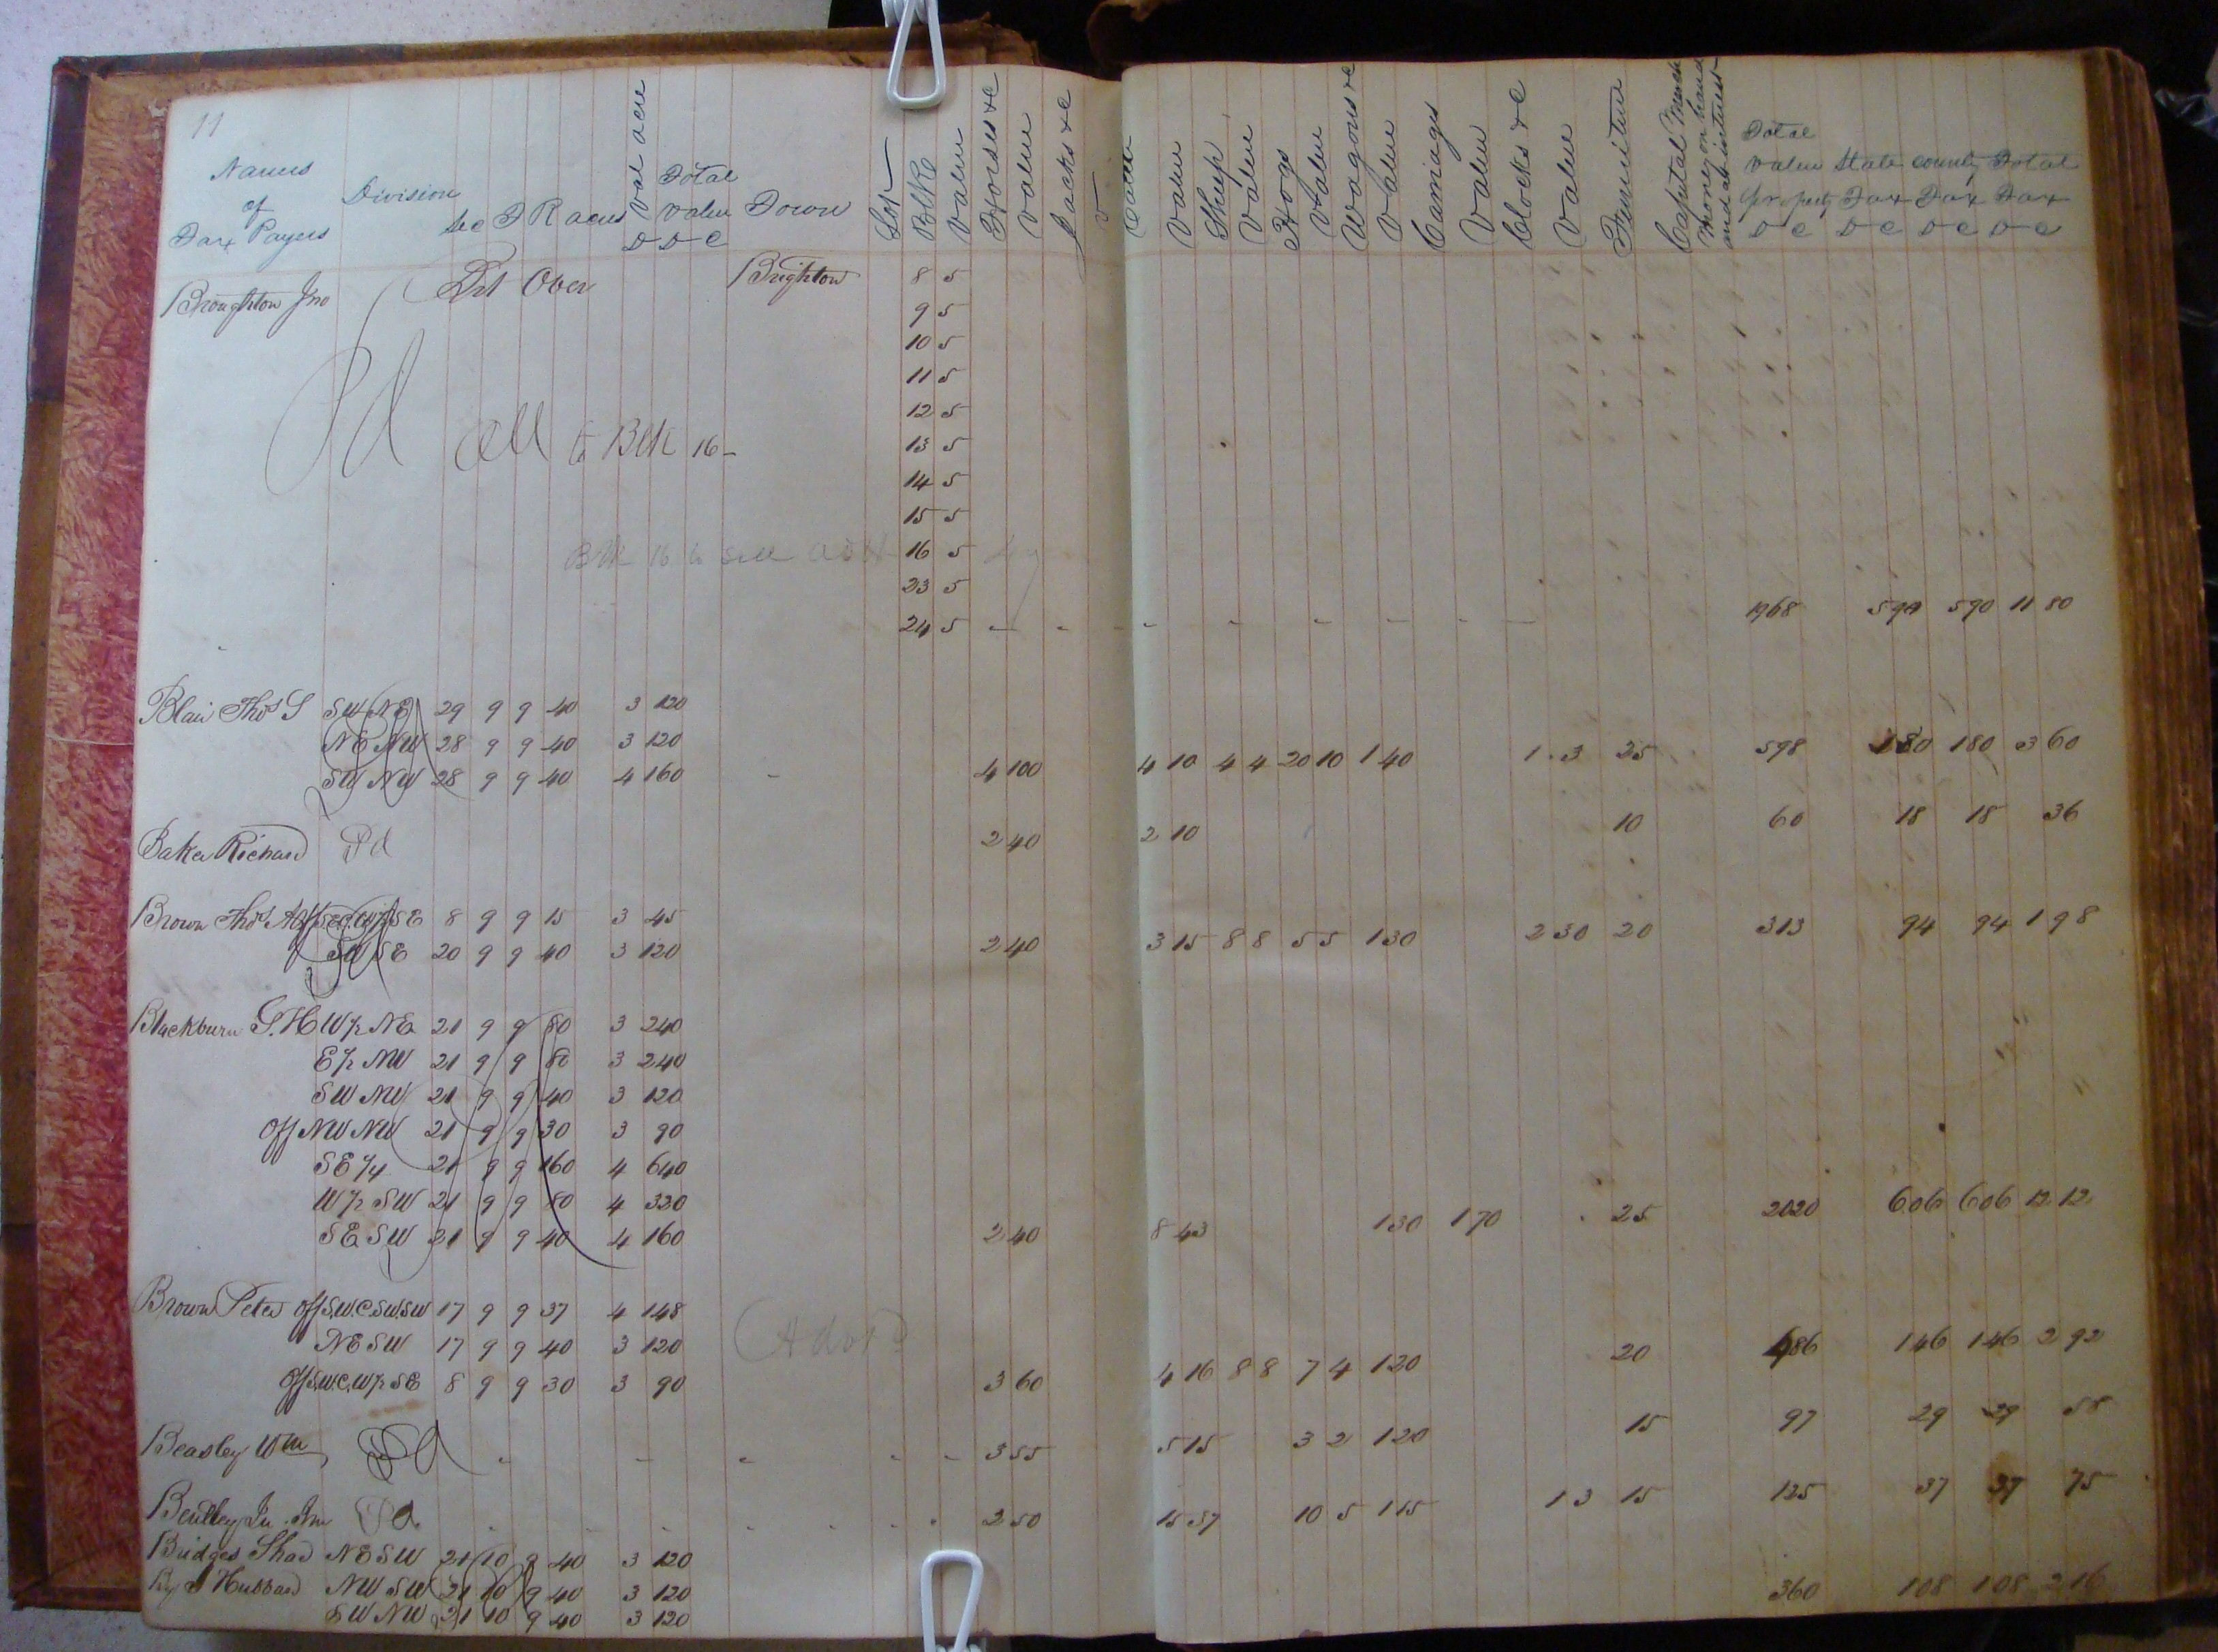 11
Names of Tax Payers Division Sec T R acres Val acre D Total Value D C Town Lot Blk Value Horses &c Value Jacks &c V Cattle Value Sheep Value Hogs Value Wagons &c Value Carriages Value Clocks &c Value Furniture Capital Merch Money on hand and at interest Total Value Property D C State Tax D C County Tax D C Total Tax D C
Broughton Jno Brt Over Brighton 8 5
9 5
10 5
11 5
12 5
Pd all to Blk 16 - 13 5
14 5
15 5
Blk 16 is 16 5
23 5
24 5 - - - - - - - - - 1968 590 590 11 80
Blair Thos S SW NE 29 9 9 40 3 120
NE NW 28 9 9 40 3 120
SW NW 28 9 9 40 4 160 - 4 100 4 10 4 4 20 10 1 40 1 3 25 598 180 180 3 60
Baker Richard Pd 2 40 2 10 10 60 18 18 36
Brown Thos SE 8 9 9 15 3 45
SW SE 20 9 9 40 3 120 2 40 3 15 8 8 5 5 1 30 2 30 20 313 94 94 1 98
Blackburn G. H W½ NE 21 9 9 80 3 240
E½ NW 21 9 9 80 3 240
SW NW 21 9 9 40 3 120
Off NW NW 21 9 9 30 3 90
SE ¼ 21 9 9 160 4 640
W½ SW 21 9 9 80 4 320
SE SW 21 9 9 40 4 160 2 40 8 43 1 30 1 70 25 2020 606 606 12 12
Brown Peter Off S.W.C. SW.SW 17 9 9 37 4 148
NE SW 17 9 9 40 3 120
Off S.W.C. W½ SE 8 9 9 30 3 90 3 60 4 16 8 8 7 4 1 20 20 486 146 146 2 92
Beasley Wm Pd - - - - - 3 55 5 15 3 2 1 20 15 97 29 29 58
Bentley Jn. Pd 2 50 15 37 10 5 1 15 1 3 15 125 37 37 75
Bridges Shad NE SW 21 10 9 40 3 120
By Hubbard NW SW 21 10 9 40 3 120
SW NW 21 10 9 40 3 120 360 108 108 2 16